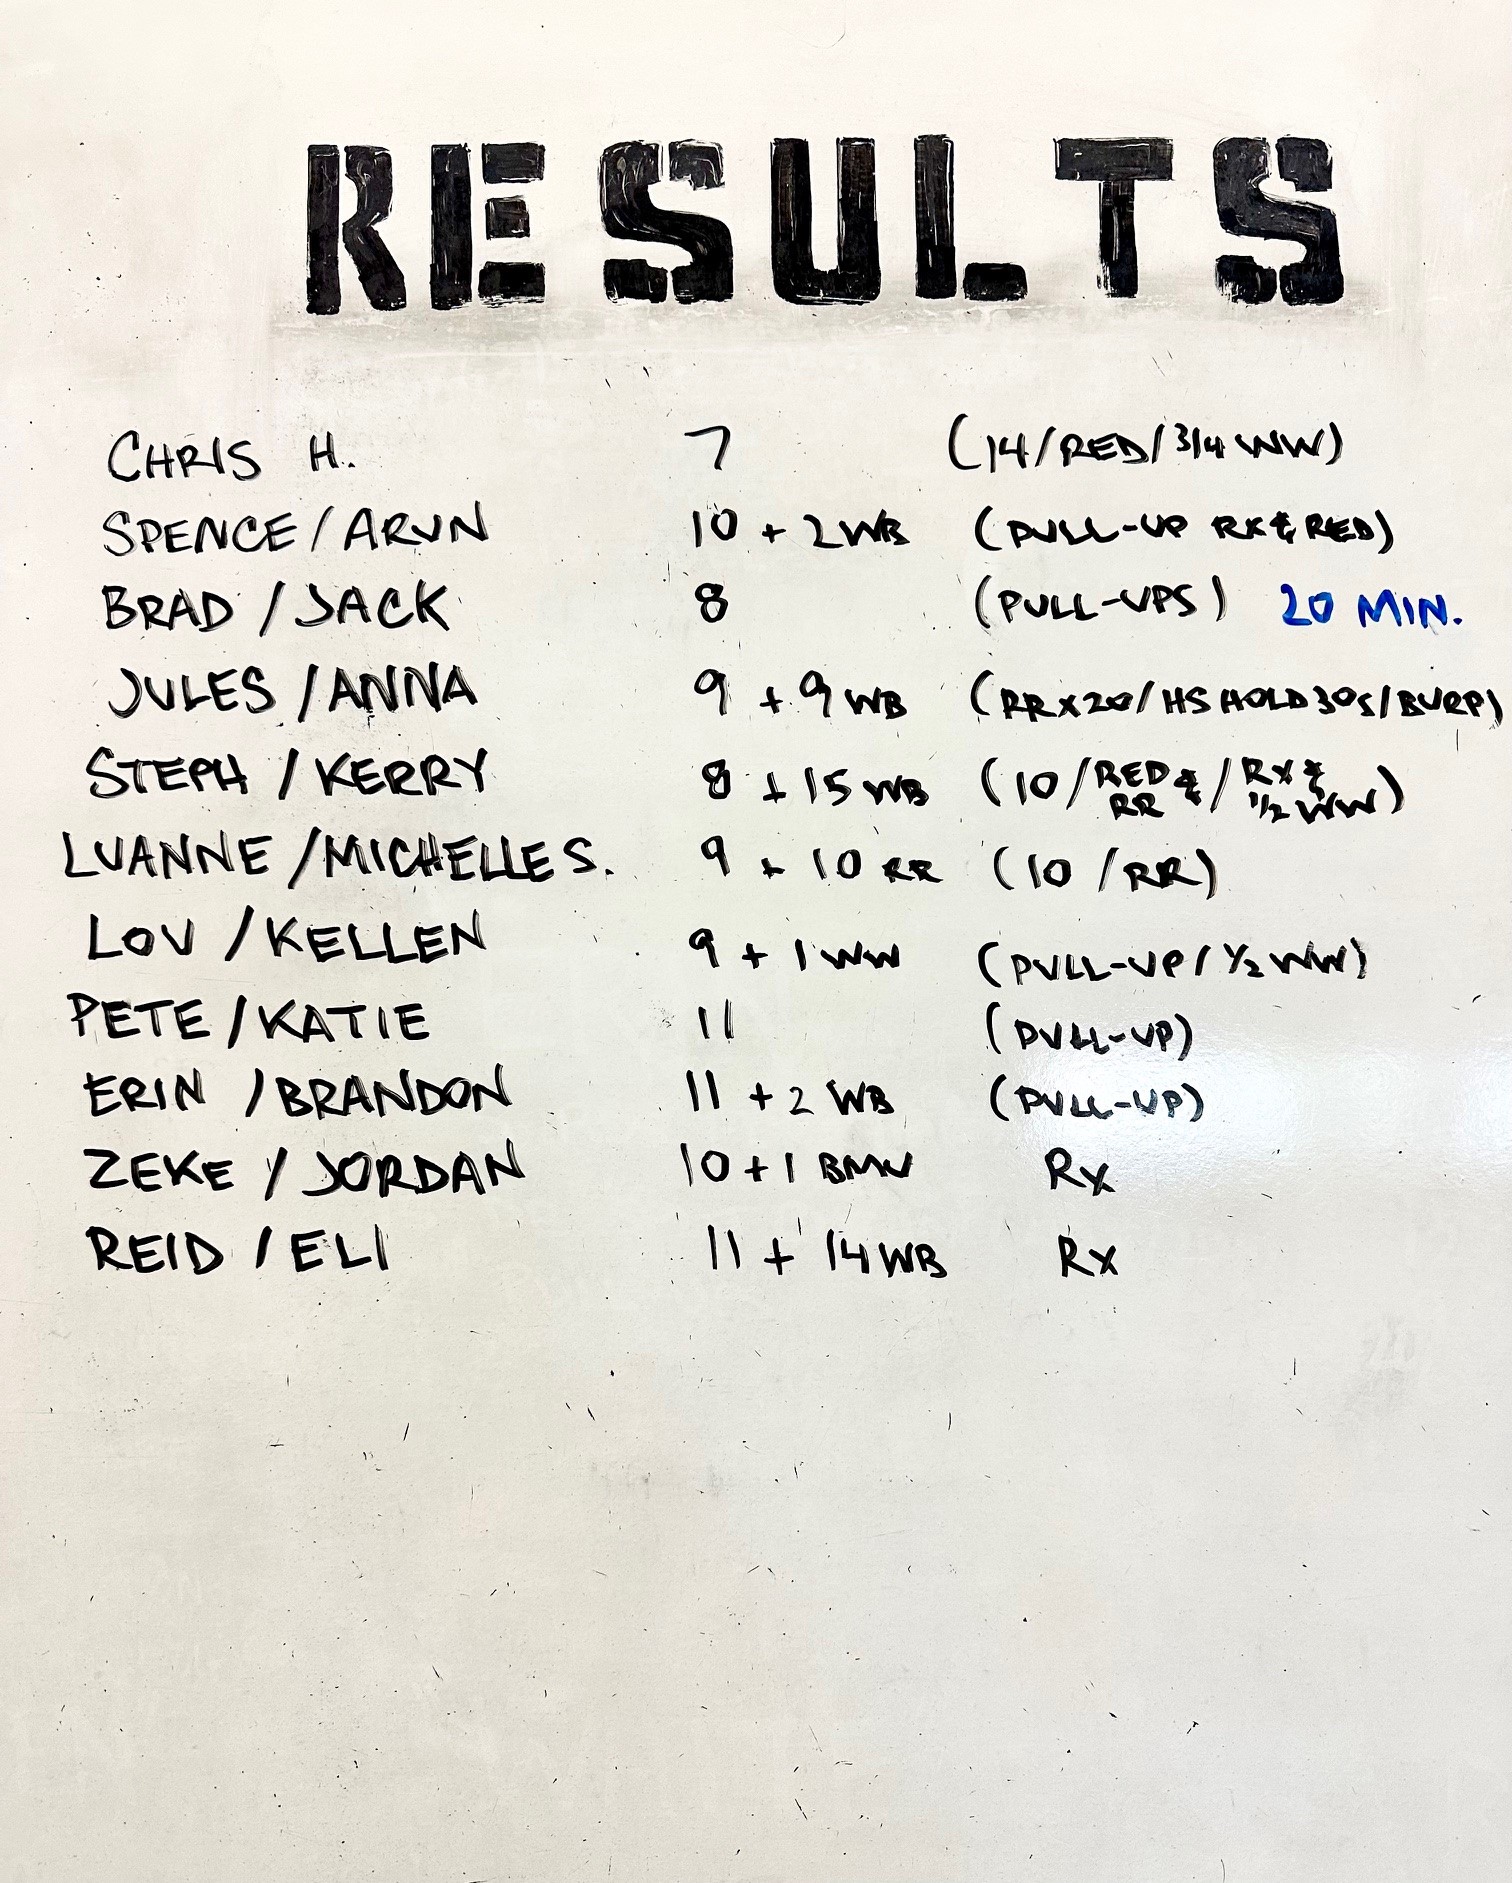 RESULTS
CHRIS H. 7 (14/RED/3/4 WW)
SPENCE/ARUN 10 + 2 WB (PULL-UP RX & RED)
BRAD/JACK 8 (PULL-UPS) 20 MIN.
JULES/ANNA 9 + 9 WB (RRX20/HS HOLD 30s/BURP)
STEPH/KERRY 8 + 15 WB (10/RED & RR/RX & 1/2 WW)
LUANNE/MICHELLE S. 9 + 10 RR (10/RR)
LOU/KELLEN 9 + 1 WW (PULL-UP/1/2 WW)
PETE/KATIE 11 (PULL-UP)
ERIN/BRANDON 11 + 2 WB (PULL-UP)
ZEKE/JORDAN 10 + 1 BMU Rx
REID/ELI 11 + 14 WB Rx